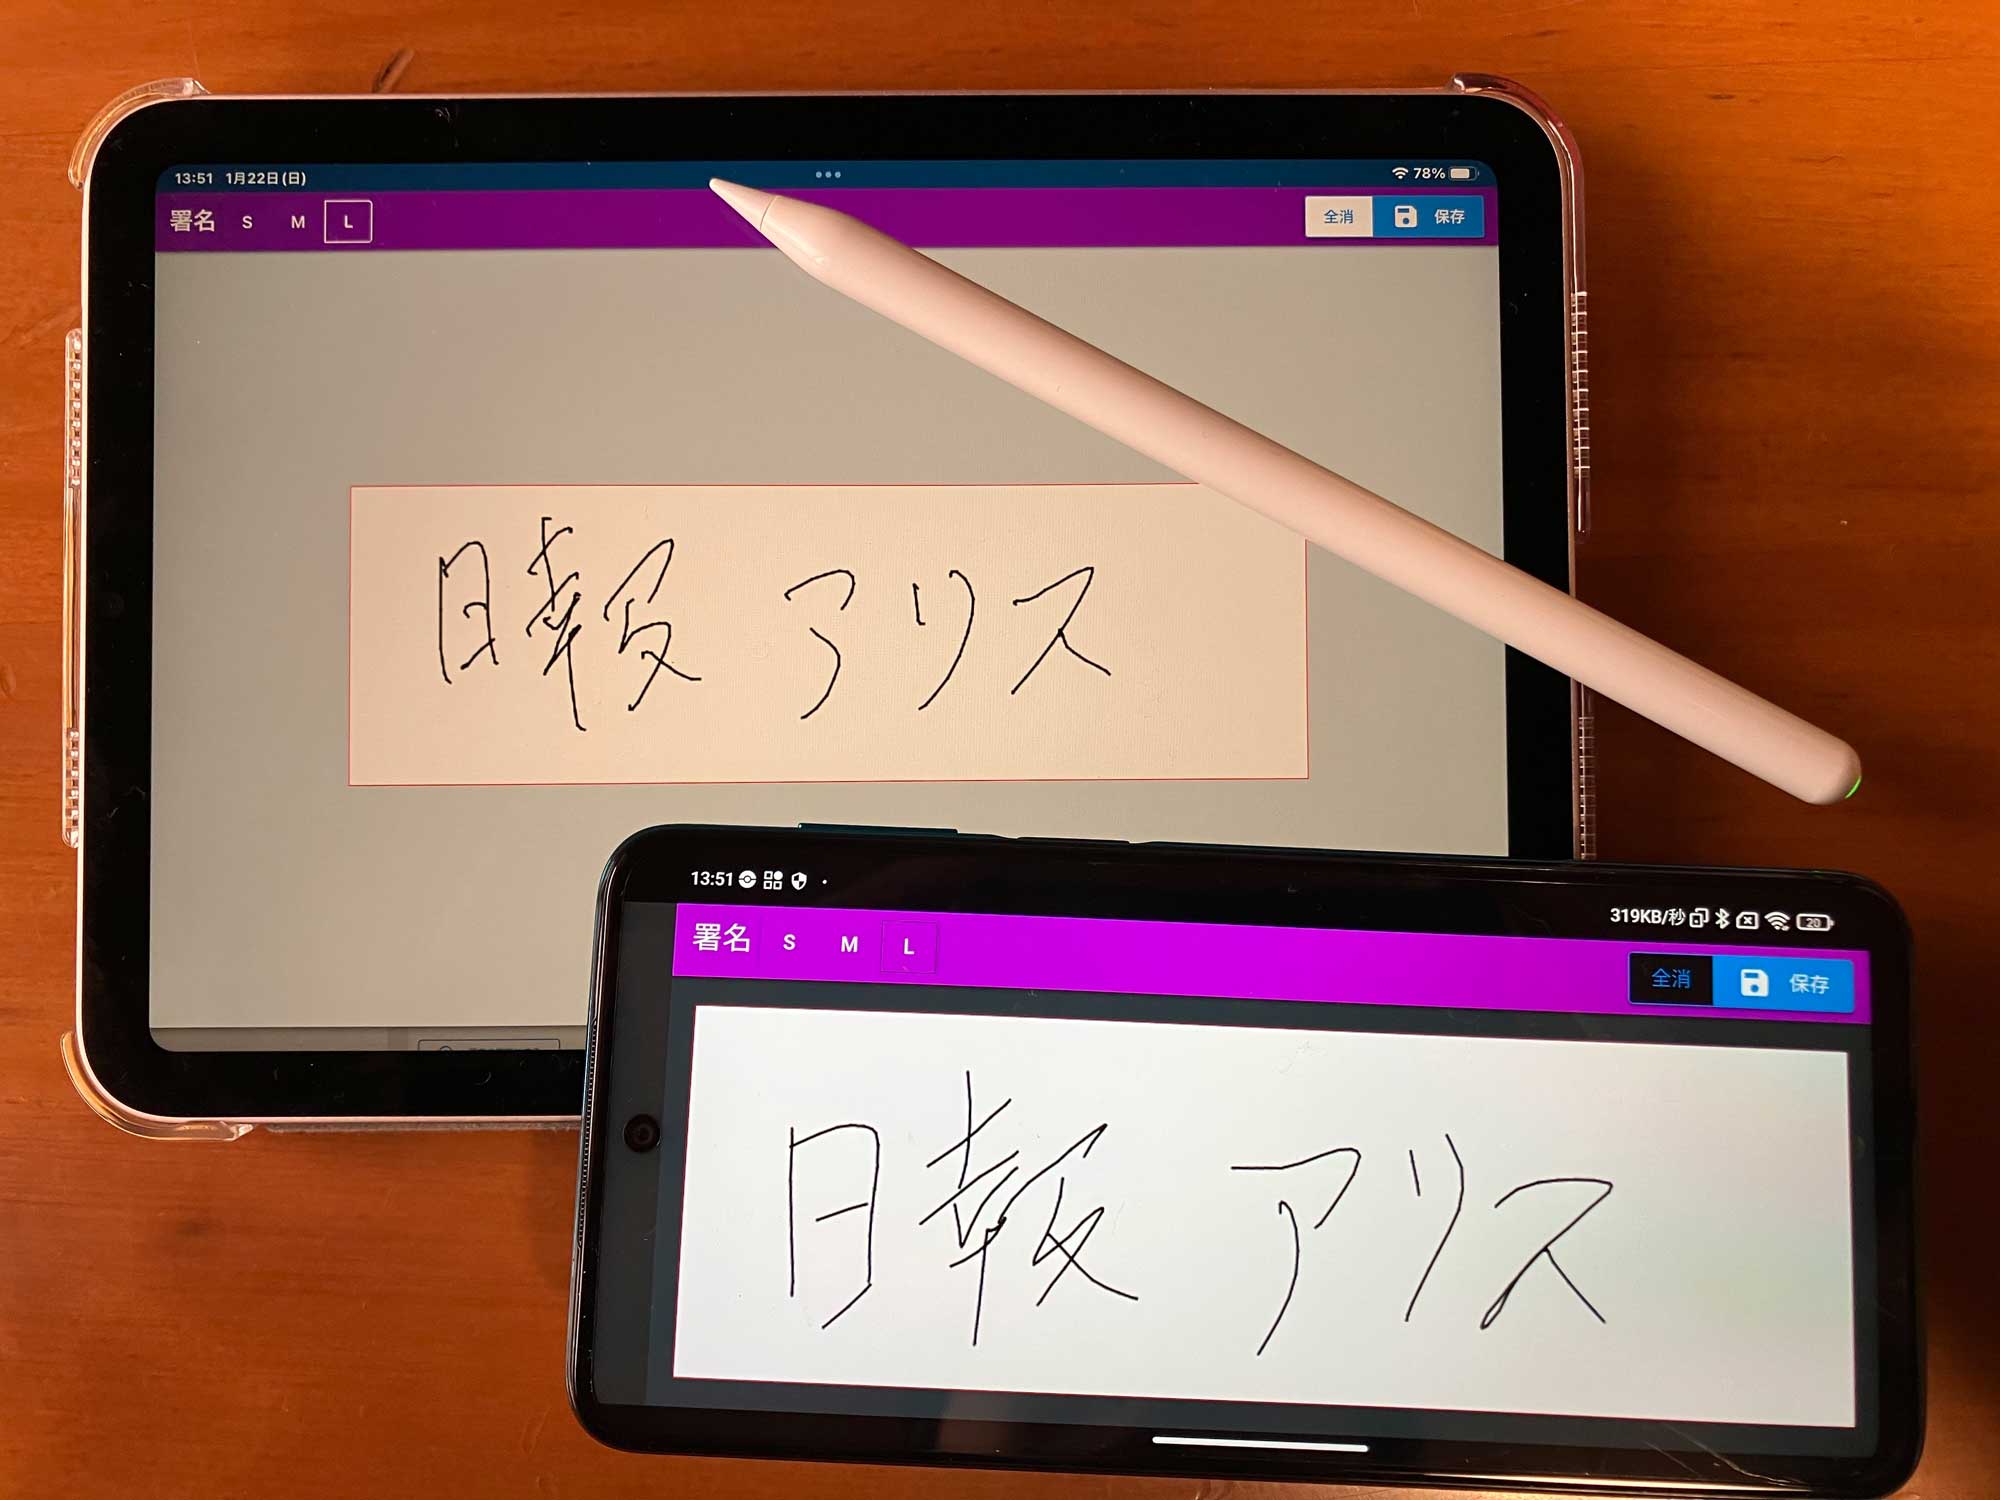 13:51 1月22日(日) 78%
署名 S M L 全消 保存
日報 アリス
13:51 319KB/秒 20
署名 S M L 全消 保存
日報 アリス